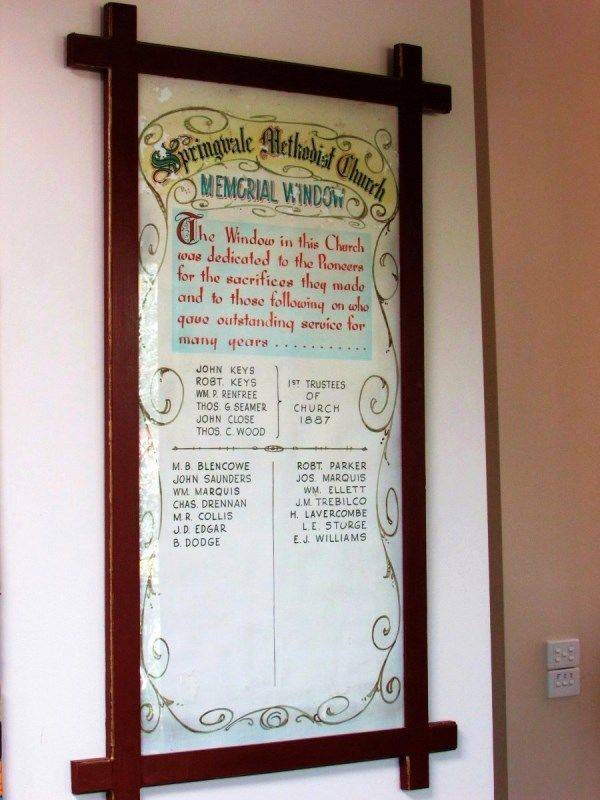 Springvale Methodist Church
MEMORIAL WINDOW
The Window in this Church
was dedicated to the Pioneers
for the sacrifices they made
and to those following on who
gave outstanding service for
many years ...........
JOHN KEYS
ROBT. KEYS
WM. P. RENFREE
THOS. G. SEAMER
JOHN CLOSE
THOS. C. WOOD
1ST TRUSTEES
OF
CHURCH
1887
M. B. BLENCOWE
JOHN SAUNDERS
WM. MARQUIS
CHAS. DRENNAN
M. R. COLLIS
J. D. EDGAR
B. DODGE
ROBT. PARKER
JOS. MARQUIS
WM. ELLETT
J. M. TREBILCO
H. LAVERCOMBE
L. E. STURGE
E. J. WILLIAMS